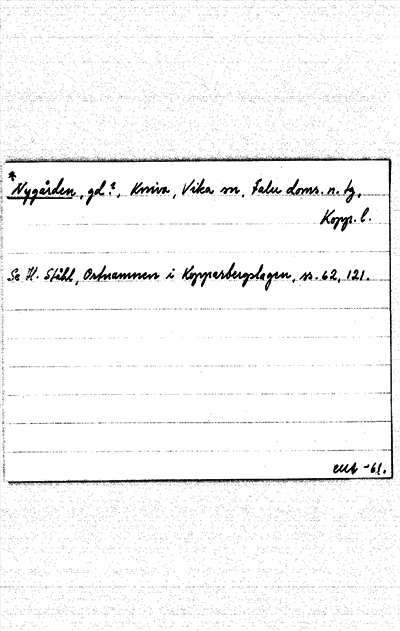 *
Nygården, gd?, Kniva, Vika sn, Falu doms. n. tg,
Kopp. l.
Se H. Ståhl, Ortnamnen i Kopparbergslagen, ss. 62, 121.
-61.